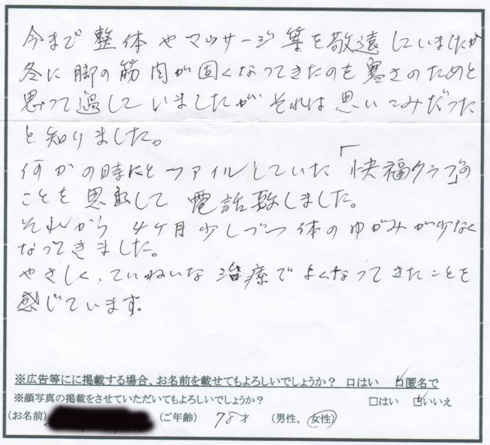 今まで整体やマッサージ等を敬遠していましたが
冬に脚の筋肉が固くなってきたのを寒さのためと
思って過していましたがそれは思いこみだった
と知りました。
何かの時にとファイルしていた「快福クラブ」の
ことを思出して電話致しました。
それから4ヶ月少しづつ体のゆがみが少なく
なってきました。
やさしく、ていねいな治療でよくなってきたことを
感じています。
※広告等にに掲載する場合、お名前を載せてもよろしいでしょうか? □はい ☑匿名で
※顔写真の掲載をさせていただいてもよろしいでしょうか? □はい ☑いいえ
(お名前) (ご年齢) 78才 (男性、女性)